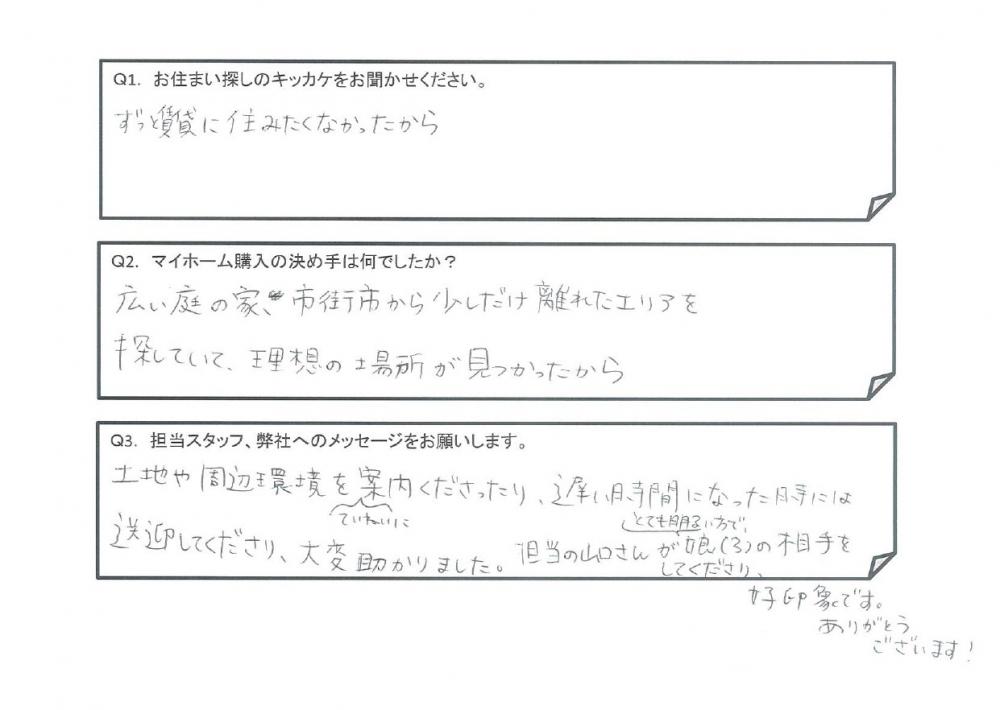 Q1. お住まい探しのキッカケをお聞かせください。
ずっと賃貸に住みたくなかったから
Q2. マイホーム購入の決め手は何でしたか？
広い庭の家、市街市から少しだけ離れたエリアを
探していて、理想の場所が見つかったから
Q3. 担当スタッフ、弊社へのメッセージをお願いします。
土地や周辺環境を案内くださったり、遅い時間になった時には
ていねいに
とても明るい方で、
送迎してくださり、大変助かりました。担当の山口さんが娘(3)の相手を
してくださり、
好印象です。
ありがとう
ございます!